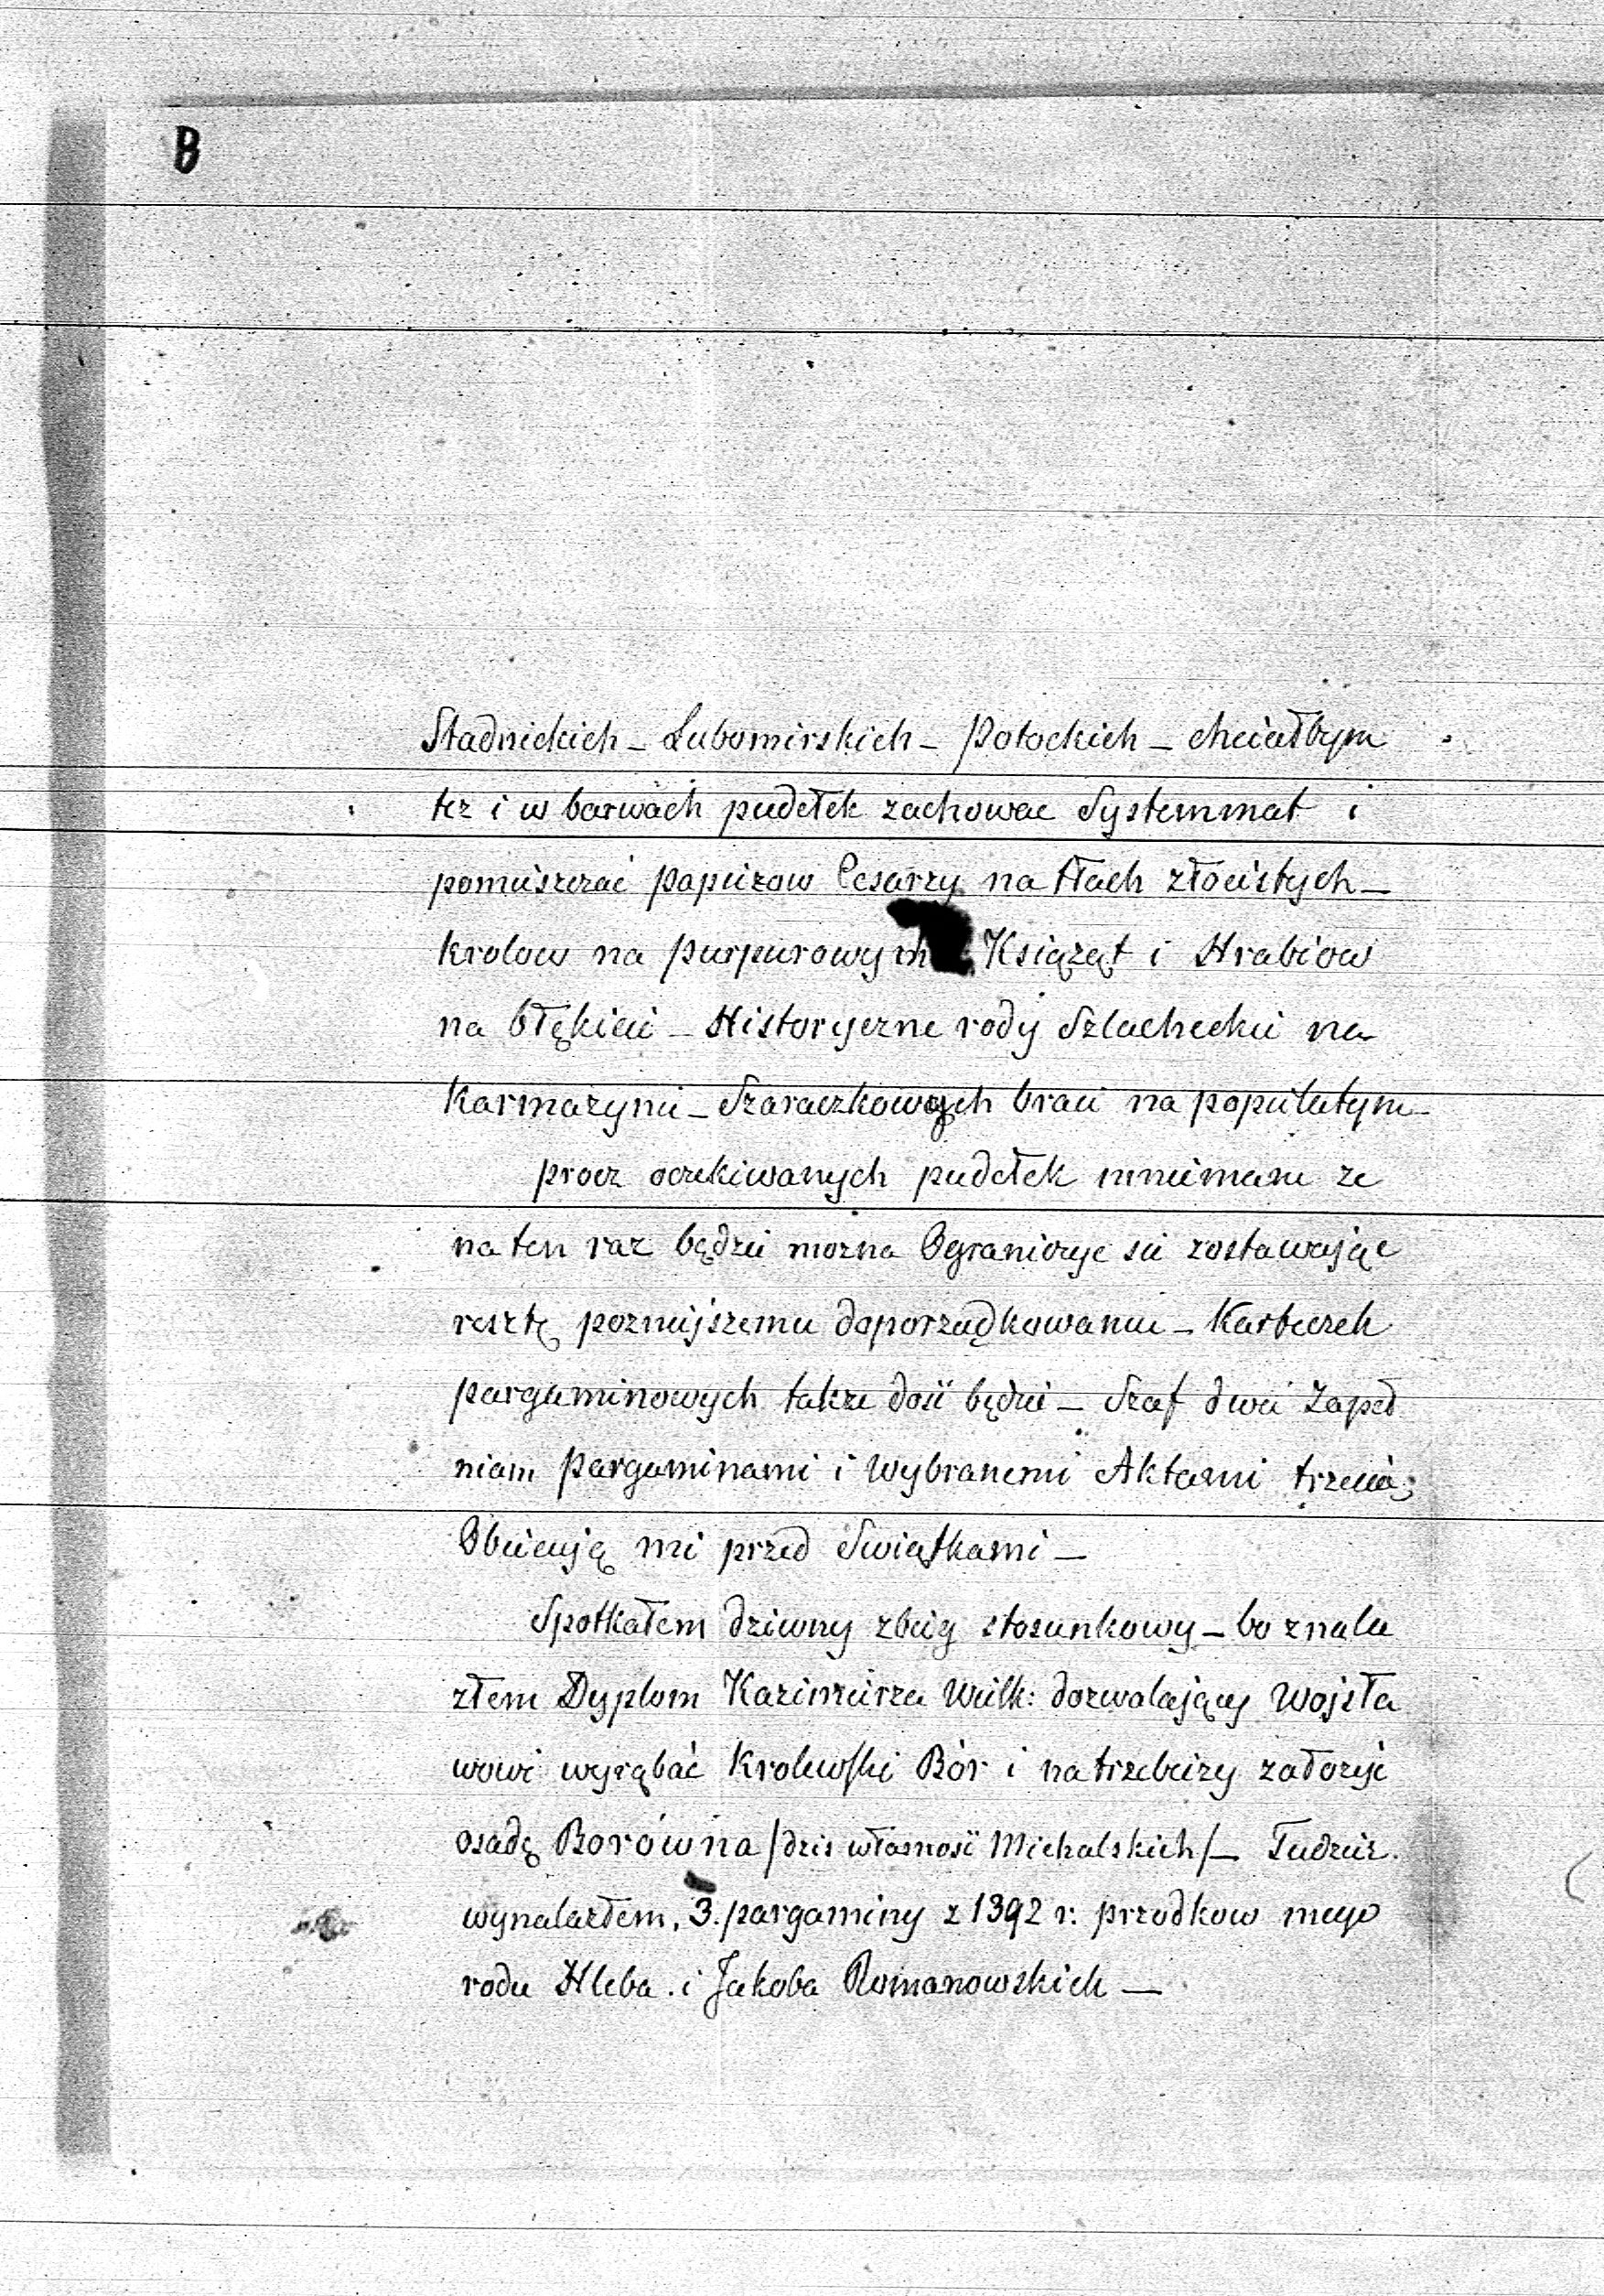 B
Stadnickich – Lubomirskich – Potockich – chciałbym
tez i w barwach pudełek zachowac Systemmat i
pomieszczać papierow Cesarzy na tłach złocistych –
krolow na purpurowym Książąt i Hrabiow
na błękicie – Historyczne rody Szlacheckie na
Karmazynie – Szaraczkowych braci na popielatym –
procz oczekiwanych pudełek mniemam ze
na ten raz będzie mozna Ograniczyc sie zostawując
resztę pozniejszemu doporządkowaniu – Karteczek
pargaminowych takze dość będzie – Szaf dwie Zapeł
niam pargaminami i wybranemi Aktami trzecią;
Obiecują mi przed Swiątkami –
Spotkałem dziwny zbieg stosunkowy – bo znala
złem Dyplom Kazimierza Wielk: dozwalający Wojsła
wowi wyrąbać Krolewski Bór i na trzebiezy założyć
osadę Borówna /dzis własność Michalskich/ – Tudziez.
wynalazłem, 3. pargaminy z 1392 r. przodkow mego
rodu Hleba . i Jakoba Romanowskich –